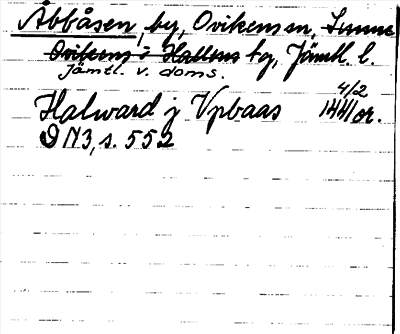 Åbbåsen, by, Ovikens sn, Sunne
Ovikens o Hallens tg, Jämtl. l.
Jämtl. v. doms.
4/2
Halward j Vpbaas 1441 or.
DN3, s. 552